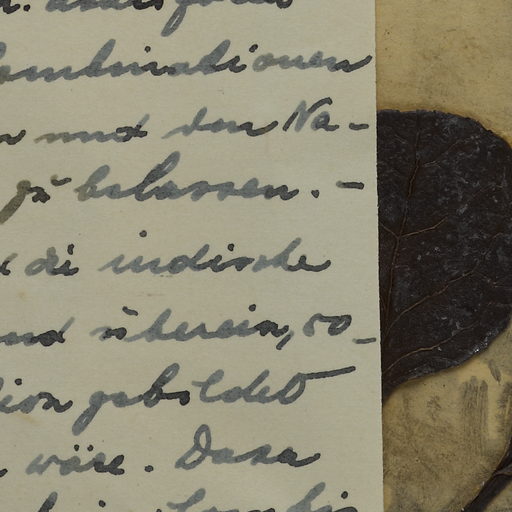 ombinationen
und den Na-
zu belassen. –
die indische
nd überein, so-
ion gebildet
wäre. Dass